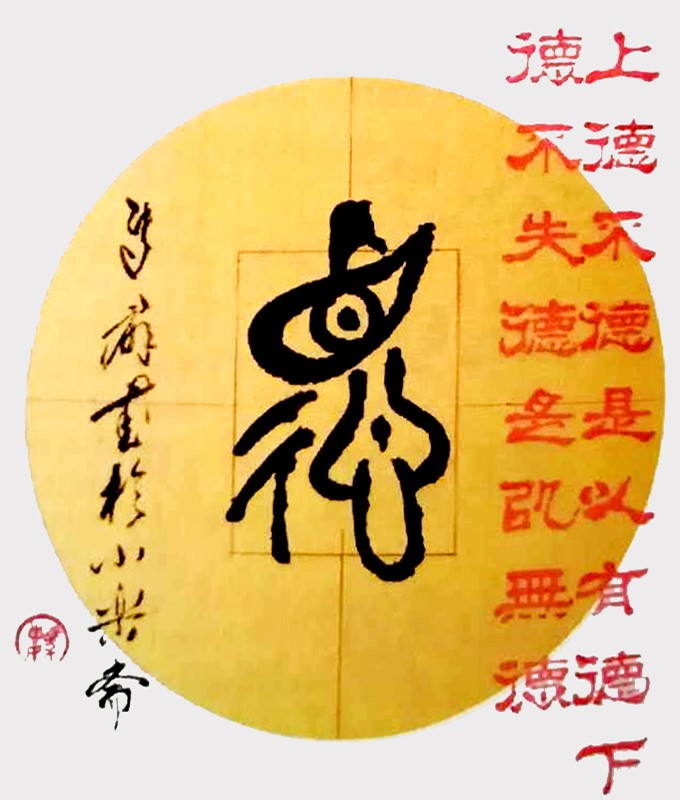 上德不德是以有德下
德不失德是以無德
德
書於小樂齋